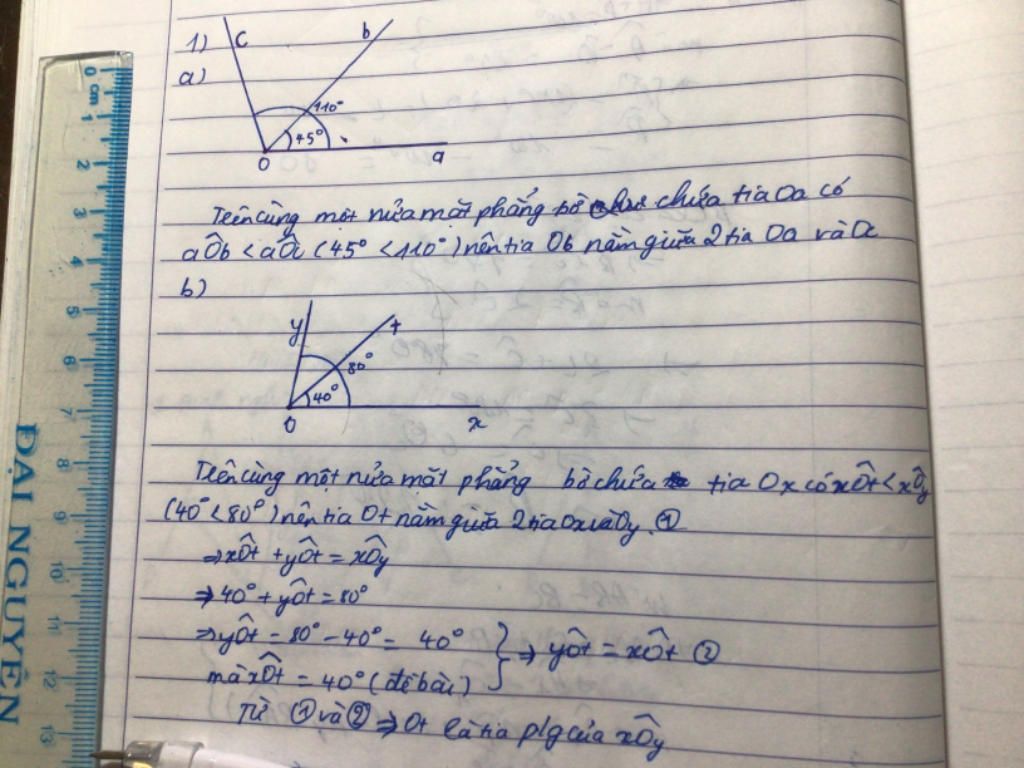 1)
c
b
a)
110°
45°
O
a
Trên cùng một nửa mặt phẳng bờ chứa tia Oa có
aÔb < aÔc (45° < 110°) nên tia Ob nằm giữa 2 tia Oa và Oc
b)
y
t
80°
40°
O
x
Trên cùng một nửa mặt phẳng bờ chứa tia Ox có xÔt < xÔy
(40° < 80°) nên tia Ot nằm giữa 2 tia Ox và Oy. ①
⇒ xÔt + yÔt = xÔy
⇒ 40° + yÔt = 80°
⇒ yÔt = 80° - 40° = 40°
mà xÔt = 40° (đề bài)
} ⇒ yÔt = xÔt ②
Từ ① và ② ⇒ Ot là tia p/g của xÔy
0 cm 1 2 3 4 5 6 7 8 9 10 11 12 13
ĐẠI NGUYÊN